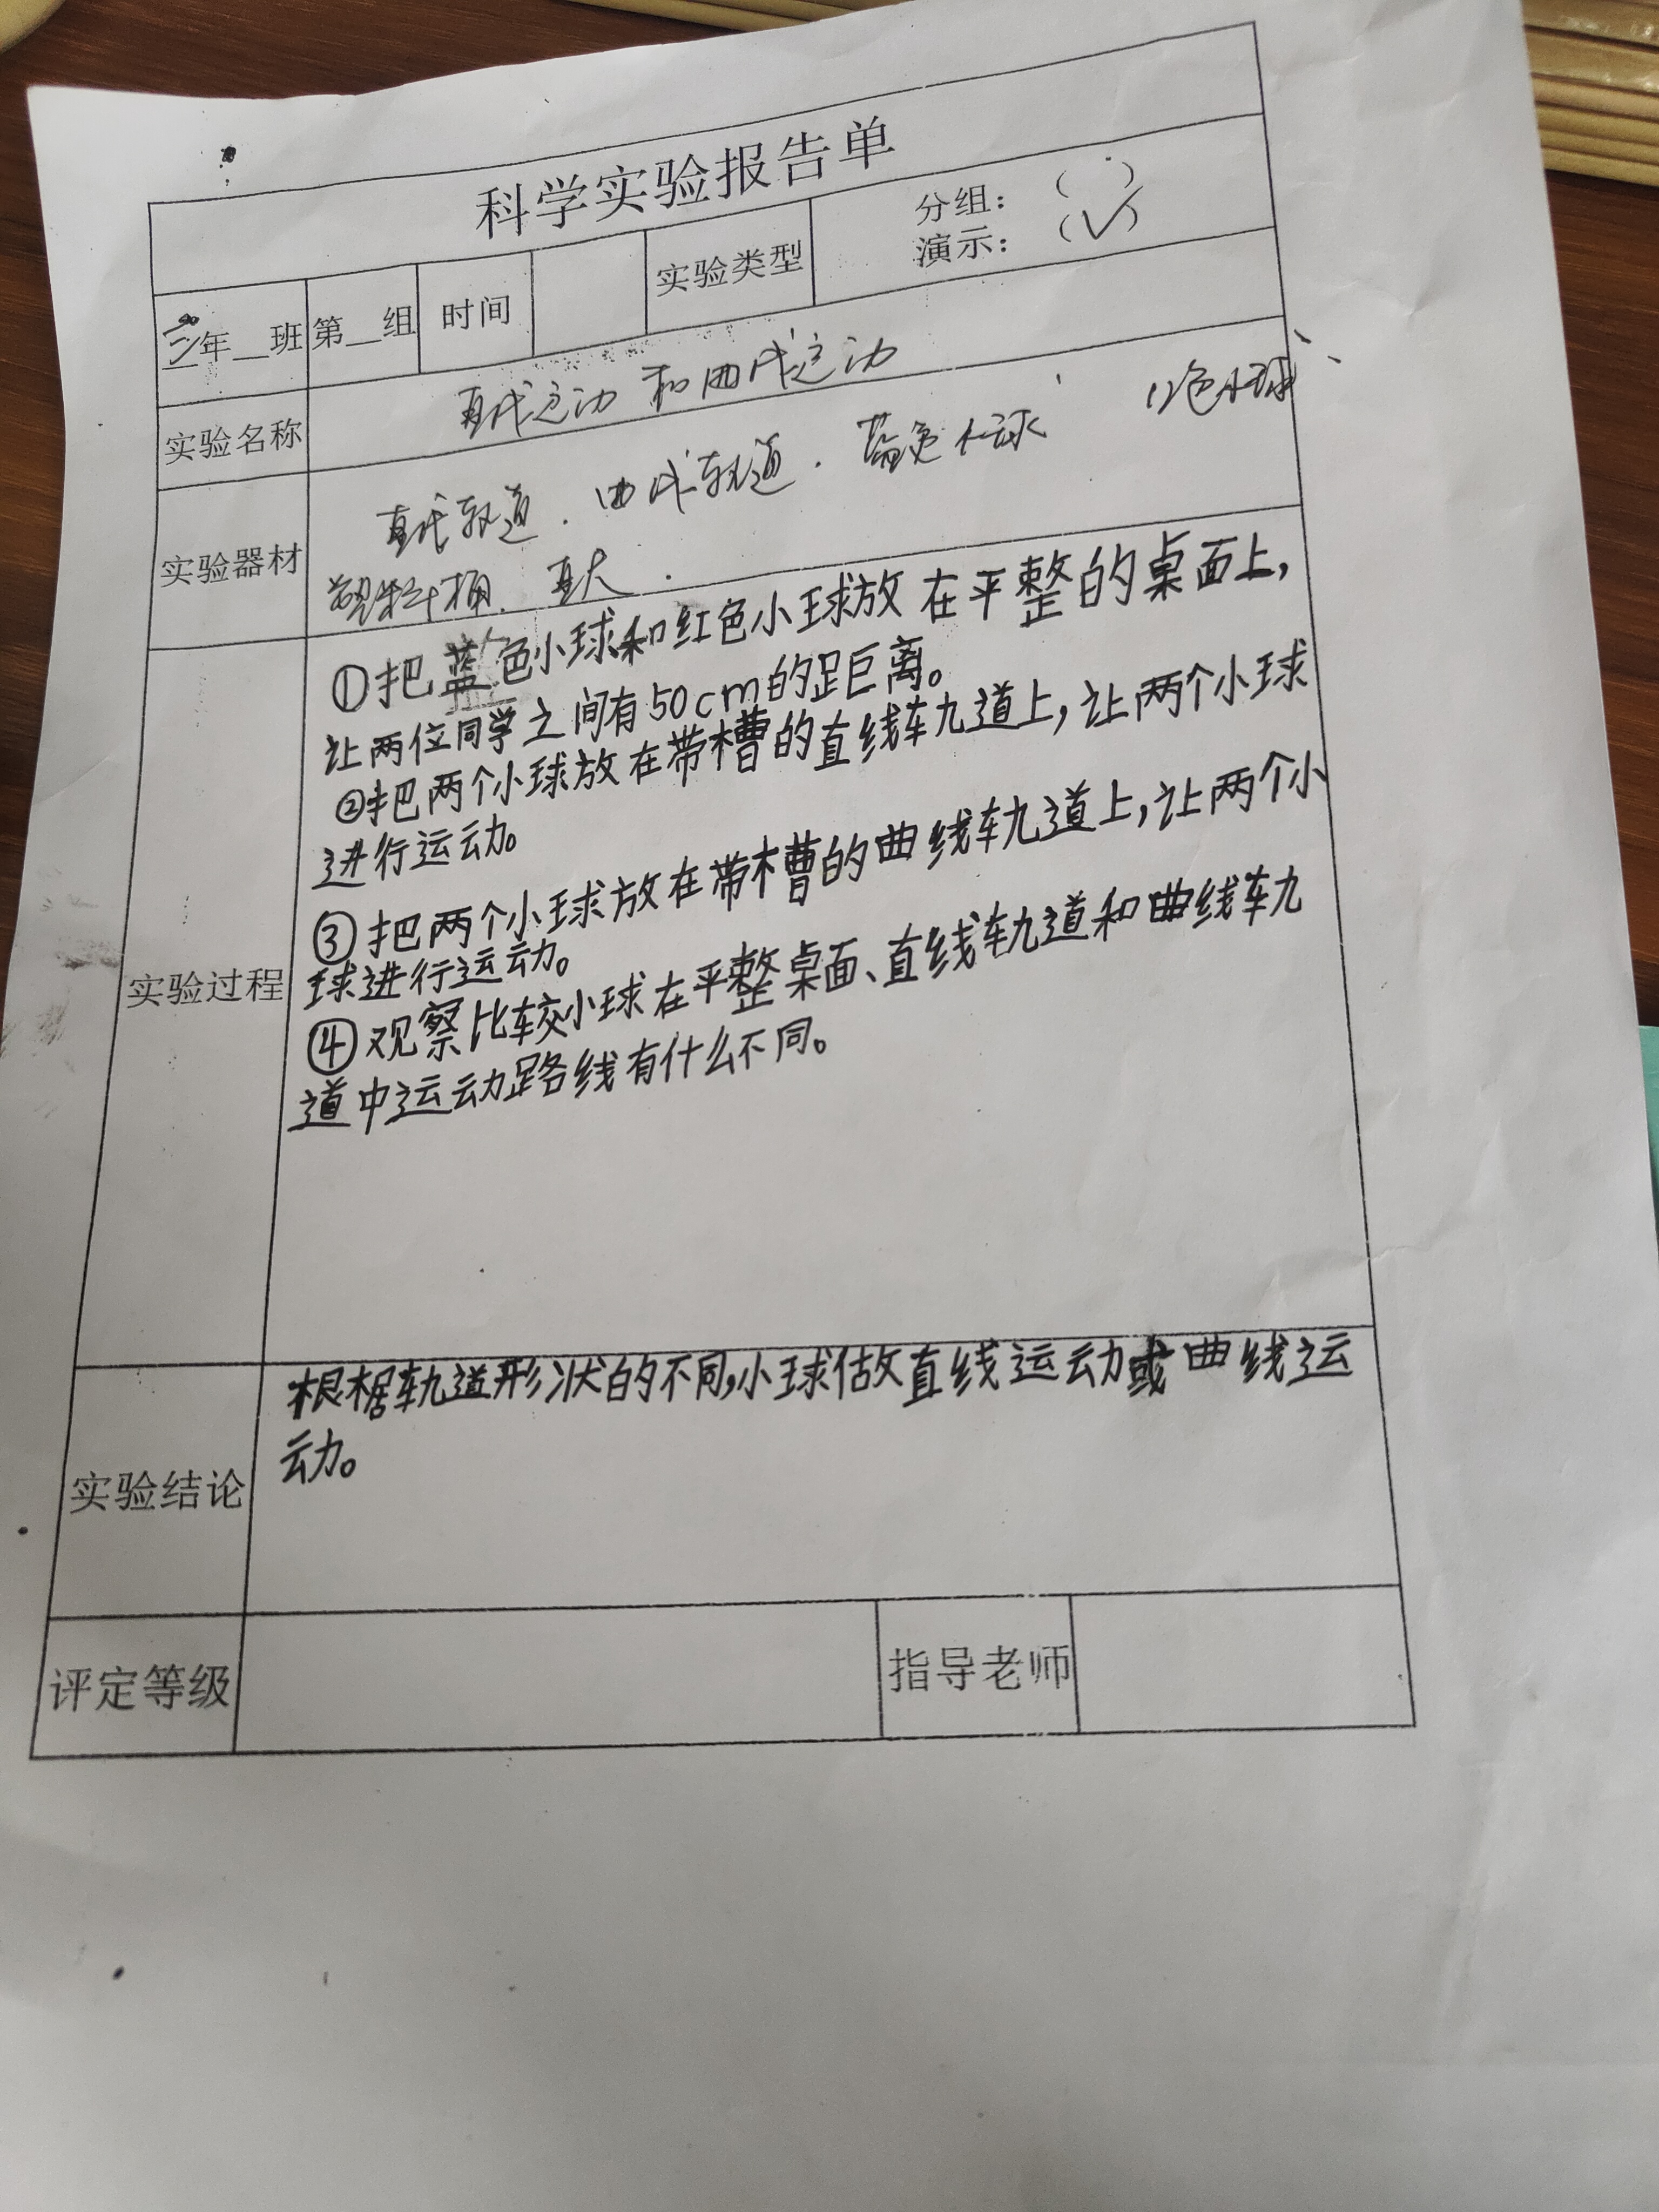 科学实验报告单
三年__班 第__组 时间 实验类型 分组：（ ）
演示：（√）
实验名称 直线运动 和 曲线运动
实验器材 直线轨道、曲线轨道、蓝色小球、红色小球、
塑料桶、直尺.
实验过程
①把蓝色小球和红色小球放在平整的桌面上,
让两位同学之间有50cm的距离。
②把两个小球放在带槽的直线轨道上,让两个小球
进行运动。
③把两个小球放在带槽的曲线轨道上,让两个小
球进行运动。
④观察比较小球在平整桌面、直线轨道和曲线轨
道中运动路线有什么不同。
实验结论
根据轨道形状的不同,小球做直线运动或曲线运
动。
评定等级 指导老师